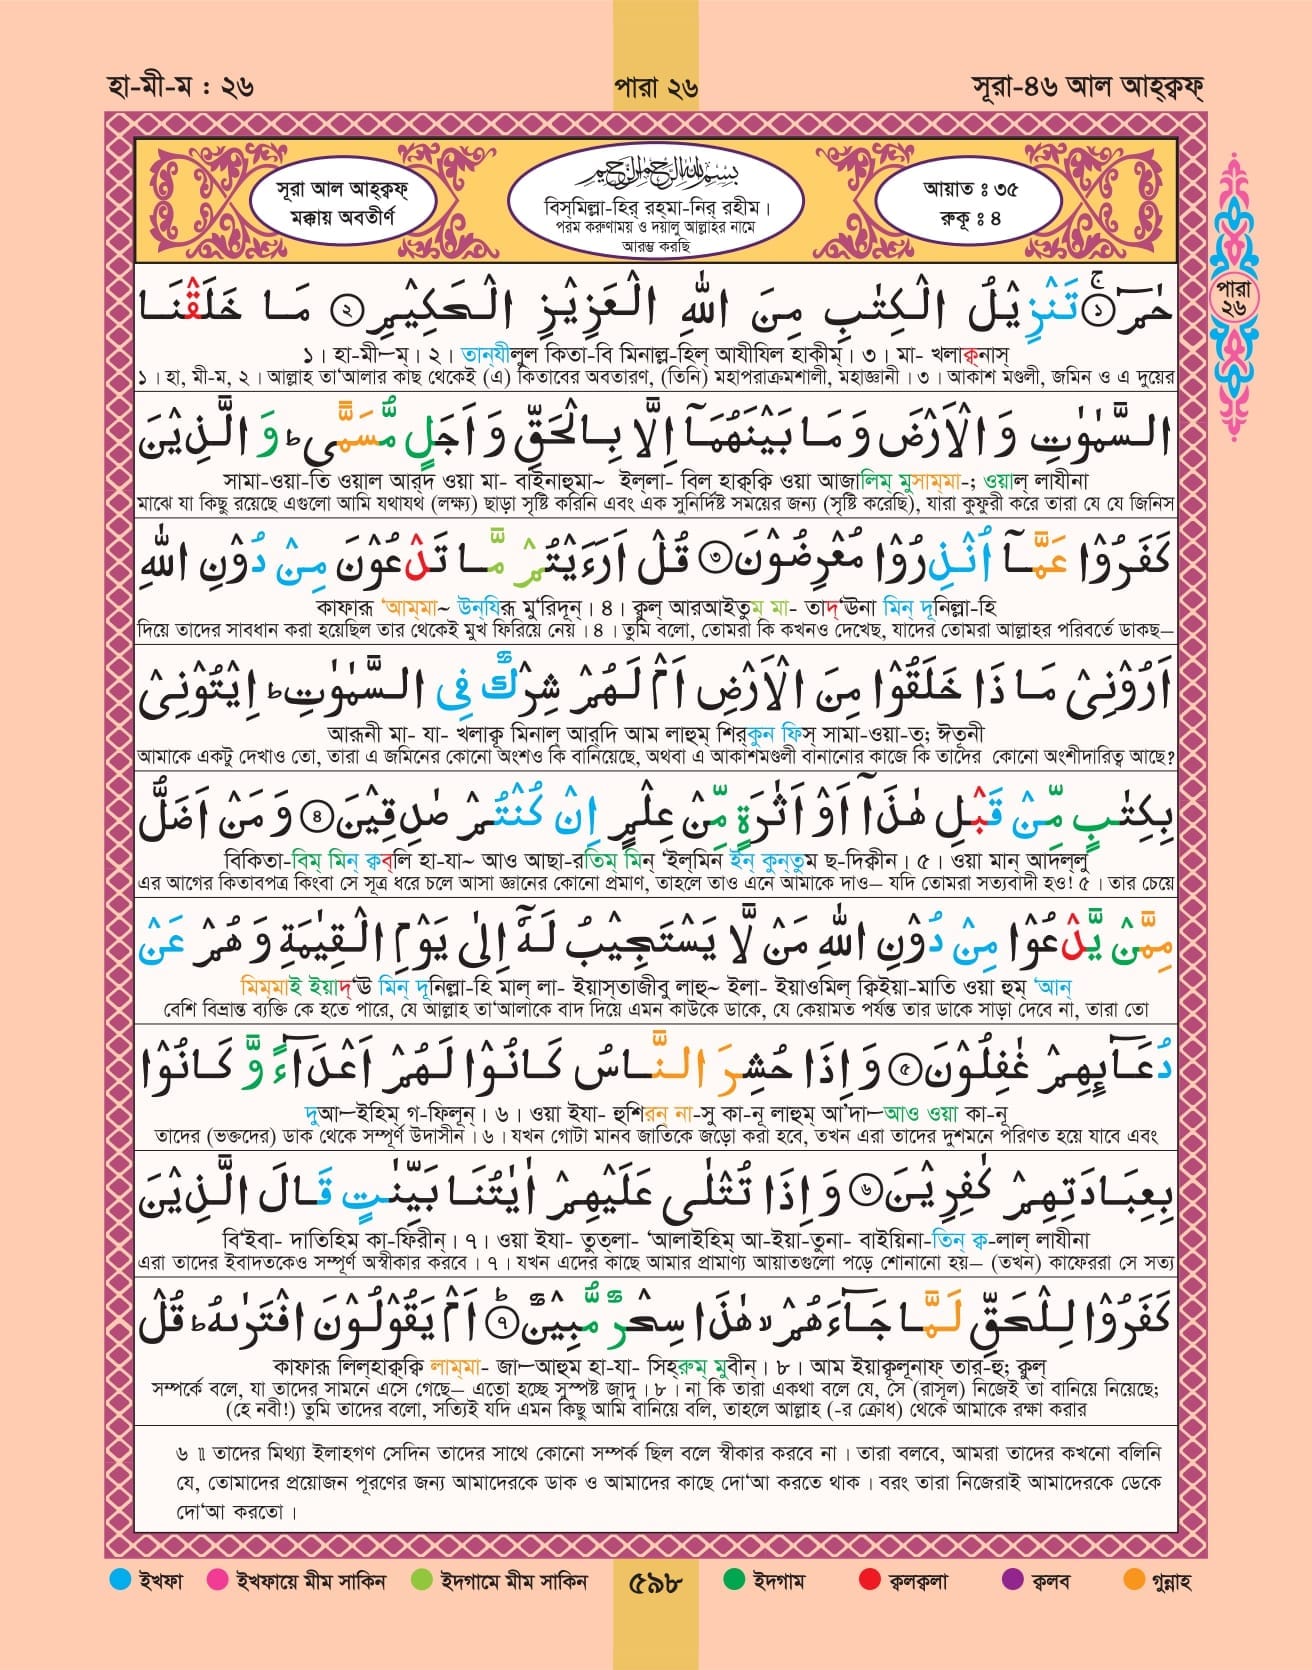 হা-মী-ম : ২৬
পারা ২৬
সূরা-৪৬ আল আহ্‌ক্বফ্
সূরা আল আহ্‌ক্বফ্
মক্কায় অবতীর্ণ
بِسْمِ اللهِ الرَّحْمٰنِ الرَّحِيْمِ
বিস্‌মিল্লা-হির্ রহ্‌মা-নির্ রহীম।
পরম করুণাময় ও দয়ালু আল্লাহর নামে
আরম্ভ করছি
আয়াত : ৩৫
রুকু : ৪
পারা
২৬
حٰمٓ ۚ﴿۱﴾ تَنْزِيْلُ الْكِتٰبِ مِنَ اللهِ الْعَزِيْزِ الْحَكِيْمِ ﴿۲﴾ مَا خَلَقْنَا
১। হা-মী—ম্। ২। তান্‌যীলুল কিতা-বি মিনাল্ল-হিল্ আযীযিল হাকীম্। ৩। মা- খলাক্বনাস্
১। হা, মী-ম, ২। আল্লাহ তা‘আলার কাছ থেকেই (এ) কিতাবের অবতারণ, (তিনি) মহাপরাক্রমশালী, মহাজ্ঞানী। ৩। আকাশ মণ্ডলী, জমিন ও এ দুয়ের
السَّمٰوٰتِ وَ الْاَرْضَ وَ مَا بَيْنَهُمَآ اِلَّا بِالْحَقِّ وَ اَجَلٍ مُّسَمًّى ؕ وَ الَّذِيْنَ
সামা-ওয়া-তি ওয়াল আর্‌দ ওয়া মা- বাইনাহুমা~ ইল্‌লা- বিল হাক্‌ক্বি ওয়া আজালিম্ মুসাম্‌মা-; ওয়াল্ লাযীনা
মাঝে যা কিছু রয়েছে এগুলো আমি যথাযথ (লক্ষ্য) ছাড়া সৃষ্টি করিনি এবং এক সুনির্দিষ্ট সময়ের জন্য (সৃষ্টি করেছি), যারা কুফুরী করে তারা যে যে জিনিস
كَفَرُوْا عَمَّآ اُنْذِرُوْا مُعْرِضُوْنَ ﴿۳﴾ قُلْ اَرَءَيْتُمْ مَّا تَدْعُوْنَ مِنْ دُوْنِ اللهِ
কাফারূ ‘আম্‌মা~ উন্‌যিরূ মু‘রিদূন্। ৪। ক্বুল্ আরআইতুম মা- তাদ্‌‘ঊনা মিন্ দূনিল্লা-হি
দিয়ে তাদের সাবধান করা হয়েছিল তার থেকেই মুখ ফিরিয়ে নেয়। ৪। তুমি বলো, তোমরা কি কখনও দেখেছ, যাদের তোমরা আল্লাহর পরিবর্তে ডাকছ—
اَرُوْنِيْ مَا ذَا خَلَقُوْا مِنَ الْاَرْضِ اَمْ لَهُمْ شِرْكٌ فِي السَّمٰوٰتِ ؕ اِيْتُوْنِيْ
আরূনী মা- যা- খলাক্বূ মিনাল্ আর্‌দি আম লাহুম্ শির্‌কুন ফিস্ সামা-ওয়া-ত্; ঈতূনী
আমাকে একটু দেখাও তো, তারা এ জমিনের কোনো অংশও কি বানিয়েছে, অথবা এ আকাশমণ্ডলী বানানোর কাজে কি তাদের কোনো অংশীদারিত্ব আছে?
بِكِتٰبٍ مِّنْ قَبْلِ هٰذَآ اَوْ اَثٰرَةٍ مِّنْ عِلْمٍ اِنْ كُنْتُمْ صٰدِقِيْنَ ﴿۴﴾ وَ مَنْ اَضَلُّ
বিকিতা-বিম্ মিন্ ক্বব্‌লি হা-যা~ আও আছা-রতিম্ মিন্ ‘ইল্‌মিন ইন্ কুন্‌তুম ছ-দিক্বীন। ৫। ওয়া মান্ আদল্‌লু
এর আগের কিতাবপত্র কিংবা সে সূত্র ধরে চলে আসা জ্ঞানের কোনো প্রমাণ, তাহলে তাও এনে আমাকে দাও— যদি তোমরা সত্যবাদী হও! ৫। তার চেয়ে
مِمَّنْ يَّدْعُوْا مِنْ دُوْنِ اللهِ مَنْ لَّا يَسْتَجِيْبُ لَهٗٓ اِلٰى يَوْمِ الْقِيٰمَةِ وَ هُمْ عَنْ
মিম্‌মাই ইয়াদ্‌‘ঊ মিন্ দূনিল্লা-হি মাল্ লা- ইয়াস্‌তাজীবু লাহূ~ ইলা- ইয়াওমিল্ ক্বিইয়া-মাতি ওয়া হুম্ ‘আন্
বেশি বিভ্রান্ত ব্যক্তি কে হতে পারে, যে আল্লাহ তা‘আলাকে বাদ দিয়ে এমন কাউকে ডাকে, যে কেয়ামত পর্যন্ত তার ডাকে সাড়া দেবে না, তারা তো
دُعَآئِهِمْ غٰفِلُوْنَ ﴿۵﴾ وَ اِذَا حُشِرَ النَّاسُ كَانُوْا لَهُمْ اَعْدَآءً وَّ كَانُوْا
দুআ—ইহিম্ গ-ফিলূন্। ৬। ওয়া ইযা- হুশিরন্ না-সু কা-নূ লাহুম্ আ‘দা—আও ওয়া কা-নূ
তাদের (ভক্তদের) ডাক থেকে সম্পূর্ণ উদাসীন। ৬। যখন গোটা মানব জাতিকে জড়ো করা হবে, তখন এরা তাদের দুশমনে পরিণত হয়ে যাবে এবং
بِعِبَادَتِهِمْ كٰفِرِيْنَ ﴿۶﴾ وَ اِذَا تُتْلٰى عَلَيْهِمْ اٰيٰتُنَا بَيِّنٰتٍ قَالَ الَّذِيْنَ
বি‘ইবা- দাতিহিম কা-ফিরীন্। ৭। ওয়া ইযা- তুত্‌লা- ‘আলাইহিম্ আ-ইয়া-তুনা- বাইয়িনা-তিন্ ক্ব-লাল্ লাযীনা
এরা তাদের ইবাদতকেও সম্পূর্ণ অস্বীকার করবে। ৭। যখন এদের কাছে আমার প্রামাণ্য আয়াতগুলো পড়ে শোনানো হয়— (তখন) কাফেররা সে সত্য
كَفَرُوْا لِلْحَقِّ لَمَّا جَآءَهُمْ ۙ هٰذَا سِحْرٌ مُّبِيْنٌ ؕ﴿۷﴾ اَمْ يَقُوْلُوْنَ افْتَرٰىهُ ؕ قُلْ
কাফারূ লিল্‌হাক্‌ক্বি লাম্‌মা- জা—আহুম হা-যা- সিহ্‌রুম্ মুবীন্। ৮। আম ইয়াক্বূলূনাফ্ তার্-হু; ক্বুল্
সম্পর্কে বলে, যা তাদের সামনে এসে গেছে— এতো হচ্ছে সুস্পষ্ট জাদু। ৮। না কি তারা একথা বলে যে, সে (রাসূল) নিজেই তা বানিয়ে নিয়েছে;
(হে নবী!) তুমি তাদের বলো, সত্যিই যদি এমন কিছু আমি বানিয়ে বলি, তাহলে আল্লাহ (-র ক্রোধ) থেকে আমাকে রক্ষা করার
৬ ॥ তাদের মিথ্যা ইলাহগণ সেদিন তাদের সাথে কোনো সম্পর্ক ছিল বলে স্বীকার করবে না। তারা বলবে, আমরা তাদের কখনো বলিনি
যে, তোমাদের প্রয়োজন পূরণের জন্য আমাদেরকে ডাক ও আমাদের কাছে দো‘আ করতে থাক। বরং তারা নিজেরাই আমাদেরকে ডেকে
দো‘আ করতো।
ইখফা
ইখফায়ে মীম সাকিন
ইদগামে মীম সাকিন
৫৯৮
ইদগাম
ক্বলক্বলা
ক্বলব
গুন্নাহ